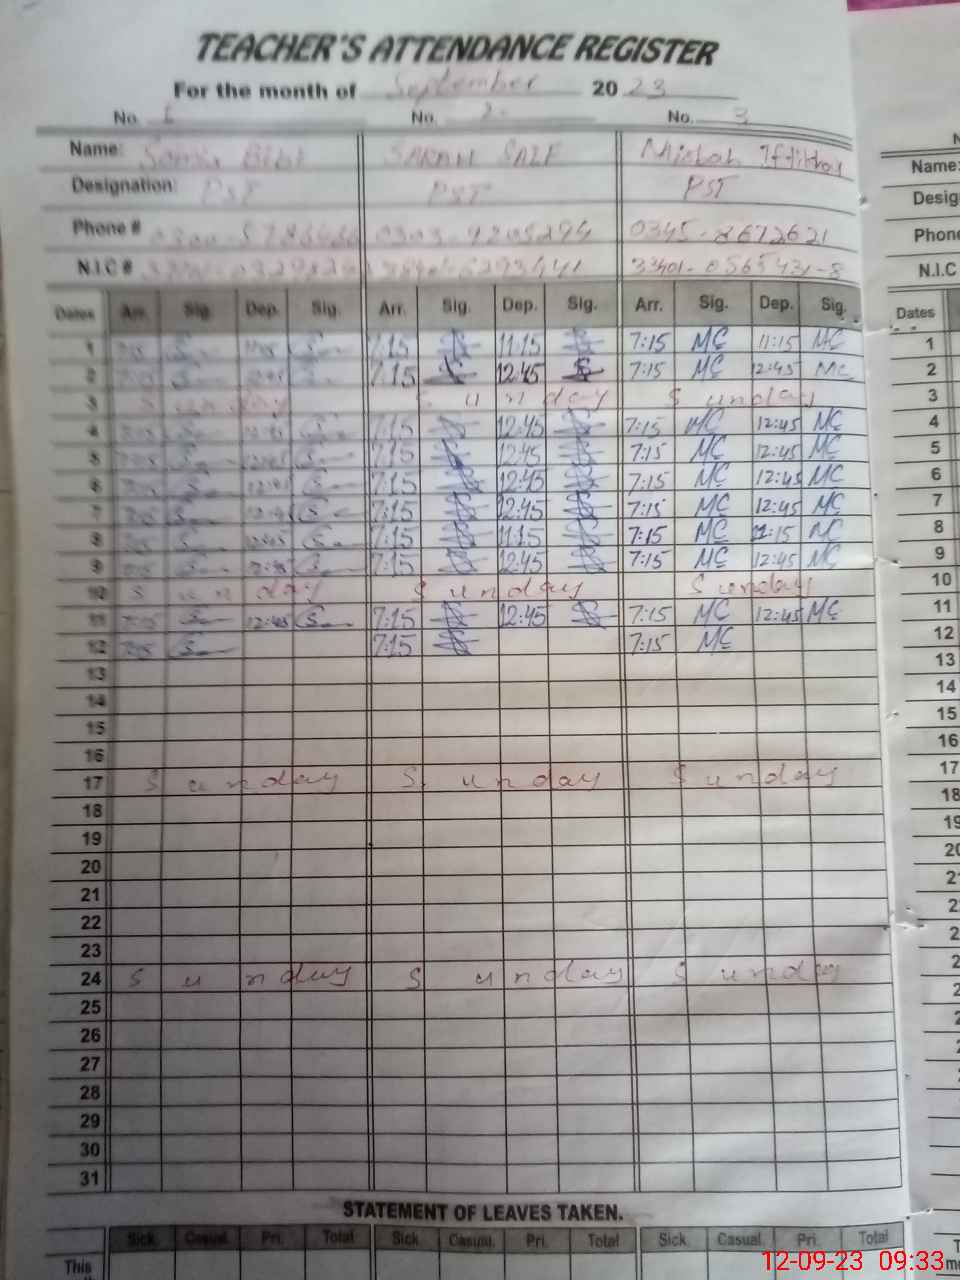 TEACHER'S ATTENDANCE REGISTER
For the month of September 2023
No. 1 No. 2 No. 3
Name: Bibi SARAH SAIF Misbah Iftikhar
Designation: PST PST PST
Phone # 0345-8672621
N.I.C #
Dates Arr. Sig. Dep. Sig. Arr. Sig. Dep. Sig. Arr. Sig. Dep. Sig.
1 7:15 7:15 11:15 7:15 MC 11:15 MC
2 7:15 7:15 12:45 7:15 MC 12:45 MC
3 Sunday Sunday Sunday
4 7:15 7:15 12:45 7:15 MC 12:45 MC
5 7:15 12:45 7:15 12:45 7:15 MC 12:45 MC
6 7:15 12:45 7:15 12:45 7:15 MC 12:45 MC
7 7:15 12:45 7:15 12:45 7:15 MC 12:45 MC
8 7:15 7:15 11:15 7:15 MC 11:15 MC
9 7:15 12:45 7:15 12:45 7:15 MC 12:45 MC
10 Sunday Sunday Sunday
11 7:15 12:45 7:15 12:45 7:15 MC 12:45 MC
12 7:15 7:15 7:15 MC
13
14
15
16
17 Sunday Sunday Sunday
18
19
20
21
22
23
24 Sunday Sunday Sunday
25
26
27
28
29
30
31
STATEMENT OF LEAVES TAKEN.
Sick. Casual. Pri. Total Sick Casual. Pri. Total Sick. Casual. Pri. Total
This
Name:
Phone
N.I.C
Dates
1
2
3
4
5
6
7
8
9
10
11
12
13
14
15
16
17
18
12-09-23 09:33